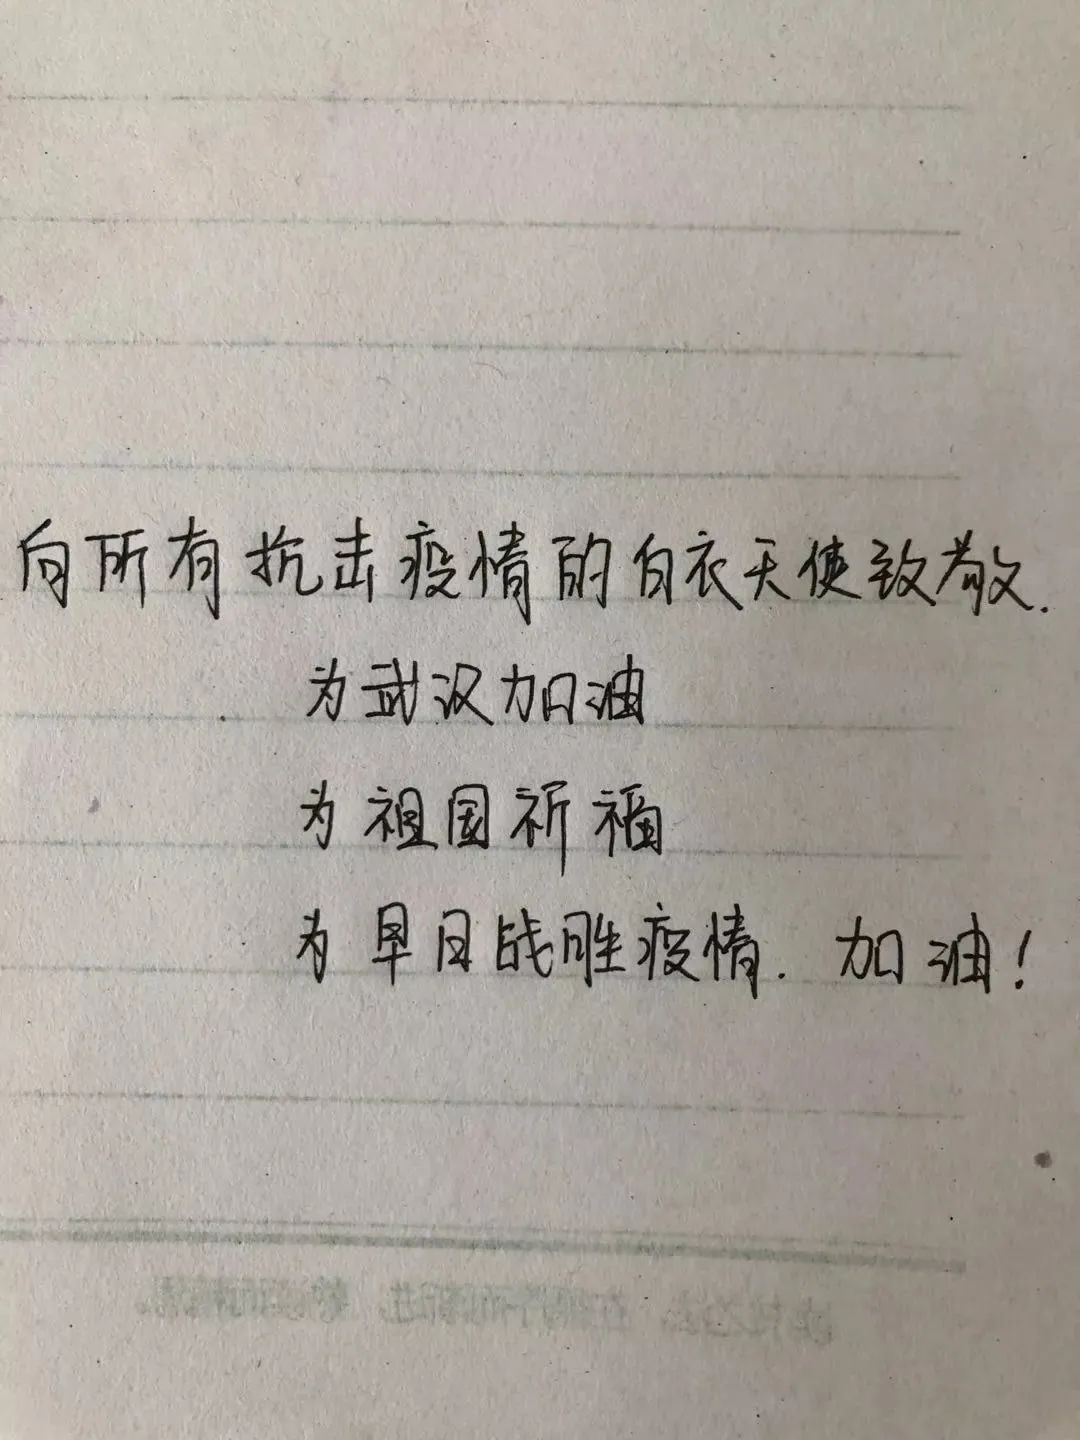 向所有抗击疫情的白衣天使致敬.
为武汉加油
为祖国祈福
为早日战胜疫情. 加油!